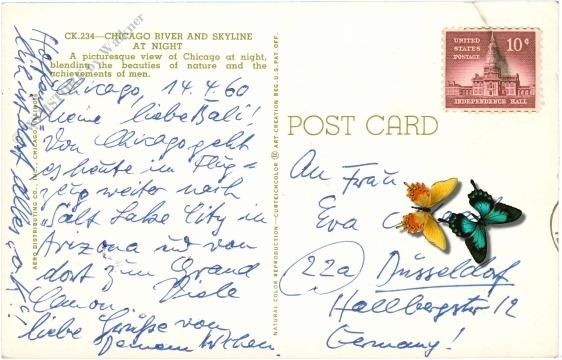 CK.234—CHICAGO RIVER AND SKYLINE
AT NIGHT
A picturesque view of Chicago at night,
blending the beauties of nature and the
achievements of men.
Chicago, 14.4.60
Meine liebe Bali!
Von Chicago geht
es heute im Flug-
zeug weiter nach
"Salt Lake City in
Arizona und von
dort zum Grand
Canon. Viele
liebe Grüße von
Deinem
alles o.k.!
AERO DISTRIBUTING CO., INC., CHICAGO, ILLINOIS
NATURAL COLOR REPRODUCTION—CURTEICHCOLOR ® ART-CREATION REG. U.S. PAT. OFF.
POST CARD
UNITED
STATES
POSTAGE
10¢
INDEPENDENCE HALL
An Frau
Eva
22a Düsseldorf
Hallbergstr 12
Germany!